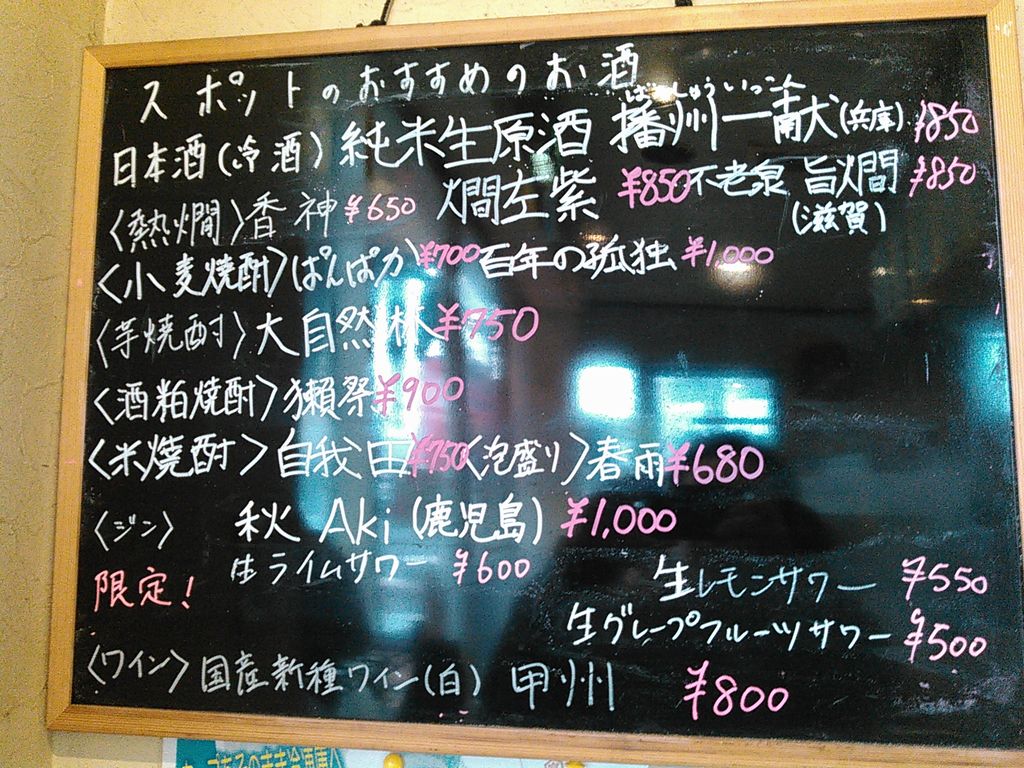 スポットのおすすめのお酒
日本酒(冷酒)純米生原酒 播州一献(兵庫)¥850
ばんしゅういっこん
〈熱燗〉香神¥650 燗左紫 ¥850 不老泉 旨燗 ¥850
(滋賀)
〈小麦焼酎〉ぱんぱか¥700 百年の孤独 ¥1,000
〈芋焼酎〉大自然林¥750
〈酒粕焼酎〉獺祭¥900
〈米焼酎〉自我田¥750〈泡盛り〉春雨¥680
〈ジン〉 秋 Aki (鹿児島) ¥1,000
限定! 生ライムサワー ¥600 生レモンサワー ¥550
生グレープフルーツサワー ¥500
〈ワイン〉国産新種ワイン(白) 甲州 ¥800